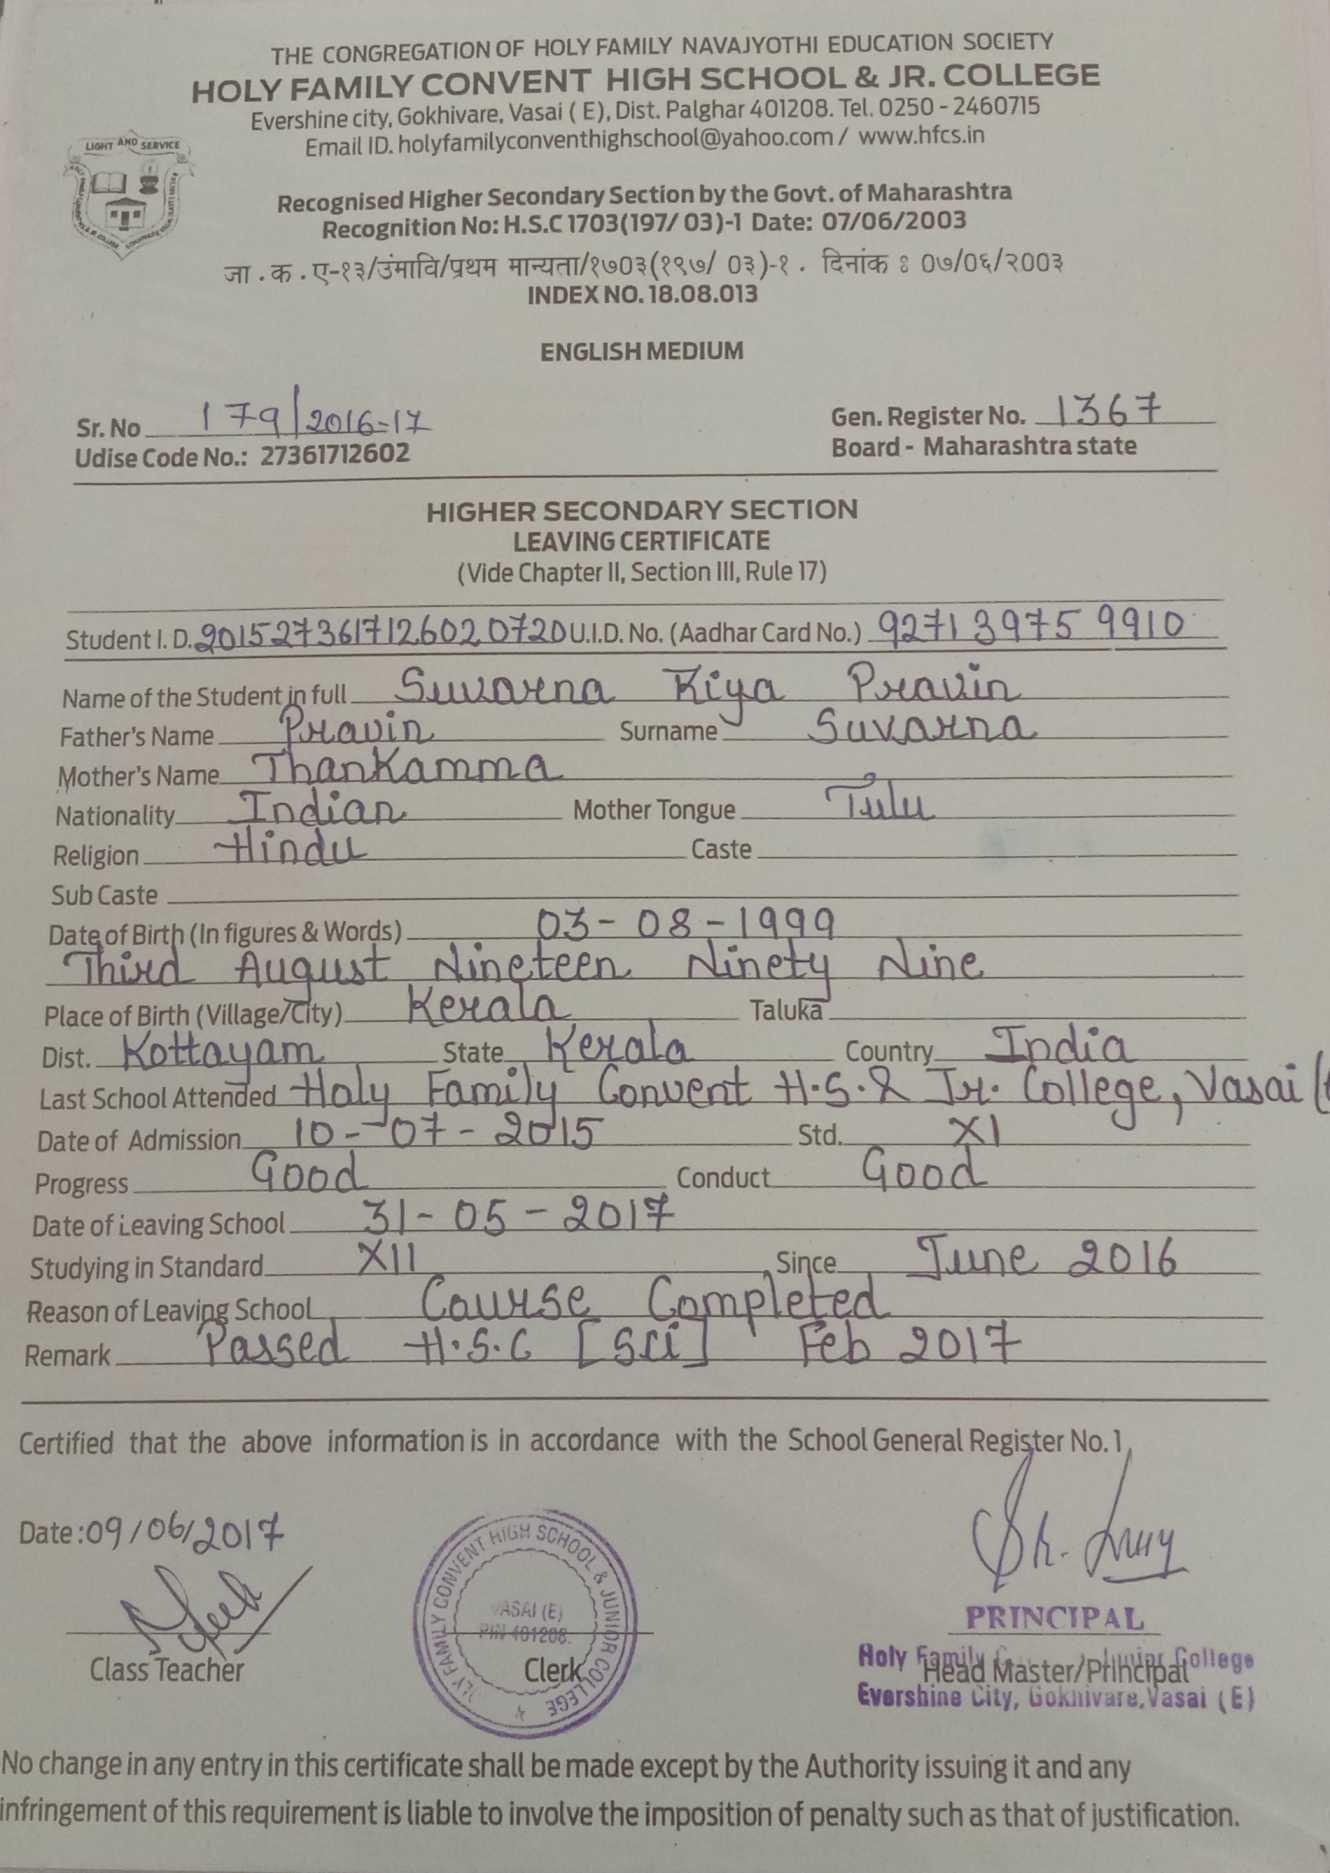 THE CONGREGATION OF HOLY FAMILY NAVAJYOTHI EDUCATION SOCIETY
HOLY FAMILY CONVENT HIGH SCHOOL & JR. COLLEGE
Evershine city, Gokhivare, Vasai ( E), Dist. Palghar 401208. Tel. 0250 - 2460715
Email ID. holyfamilyconventhighschool@yahoo.com / www.hfcs.in
LIGHT AND SERVICE
Recognised Higher Secondary Section by the Govt. of Maharashtra
Recognition No: H.S.C 1703(197/ 03)-1 Date: 07/06/2003
जा . क . ए-१३/उंमावि/प्रथम मान्यता/१७०३(१९७/ 0३)-१ . दिनांक : ०७/०६/२००३
INDEX NO. 18.08.013
ENGLISH MEDIUM
Sr. No 179/2016-17 Gen. Register No. 1367
Udise Code No.: 27361712602 Board - Maharashtra state
HIGHER SECONDARY SECTION
LEAVING CERTIFICATE
(Vide Chapter II, Section III, Rule 17)
Student I. D. 2015273617126020720 U.I.D. No. (Aadhar Card No.) 9271 3975 9910
Name of the Student in full Suvarna Riya Pravin
Father's Name Pravin Surname Suvarna
Mother's Name Thankamma
Nationality Indian Mother Tongue Tulu
Religion Hindu Caste
Sub Caste
Date of Birth (In figures & Words) 03-08-1999
Third August Nineteen Ninety Nine
Place of Birth (Village/City) Kerala Taluka
Dist. Kottayam State Kerala Country India
Last School Attended Holy Family Convent H.S.& Jr. College, Vasai (
Date of Admission 10-07-2015 Std. XI
Progress Good Conduct Good
Date of Leaving School 31-05-2017
Studying in Standard XII Since June 2016
Reason of Leaving School Course Completed
Remark Passed H.S.C [Sci] Feb 2017
Certified that the above information is in accordance with the School General Register No. 1
Date : 09/06/2017
HOLY FAMILY CONVENT HIGH SCHOOL & JUNIOR COLLEGE
VASAI (E)
PIN 401208.
PRINCIPAL
Class Teacher Clerk Head Master/Principal
Holy Family Junior College
Evershine City, Gokhivare, Vasai (E)
No change in any entry in this certificate shall be made except by the Authority issuing it and any
infringement of this requirement is liable to involve the imposition of penalty such as that of justification.